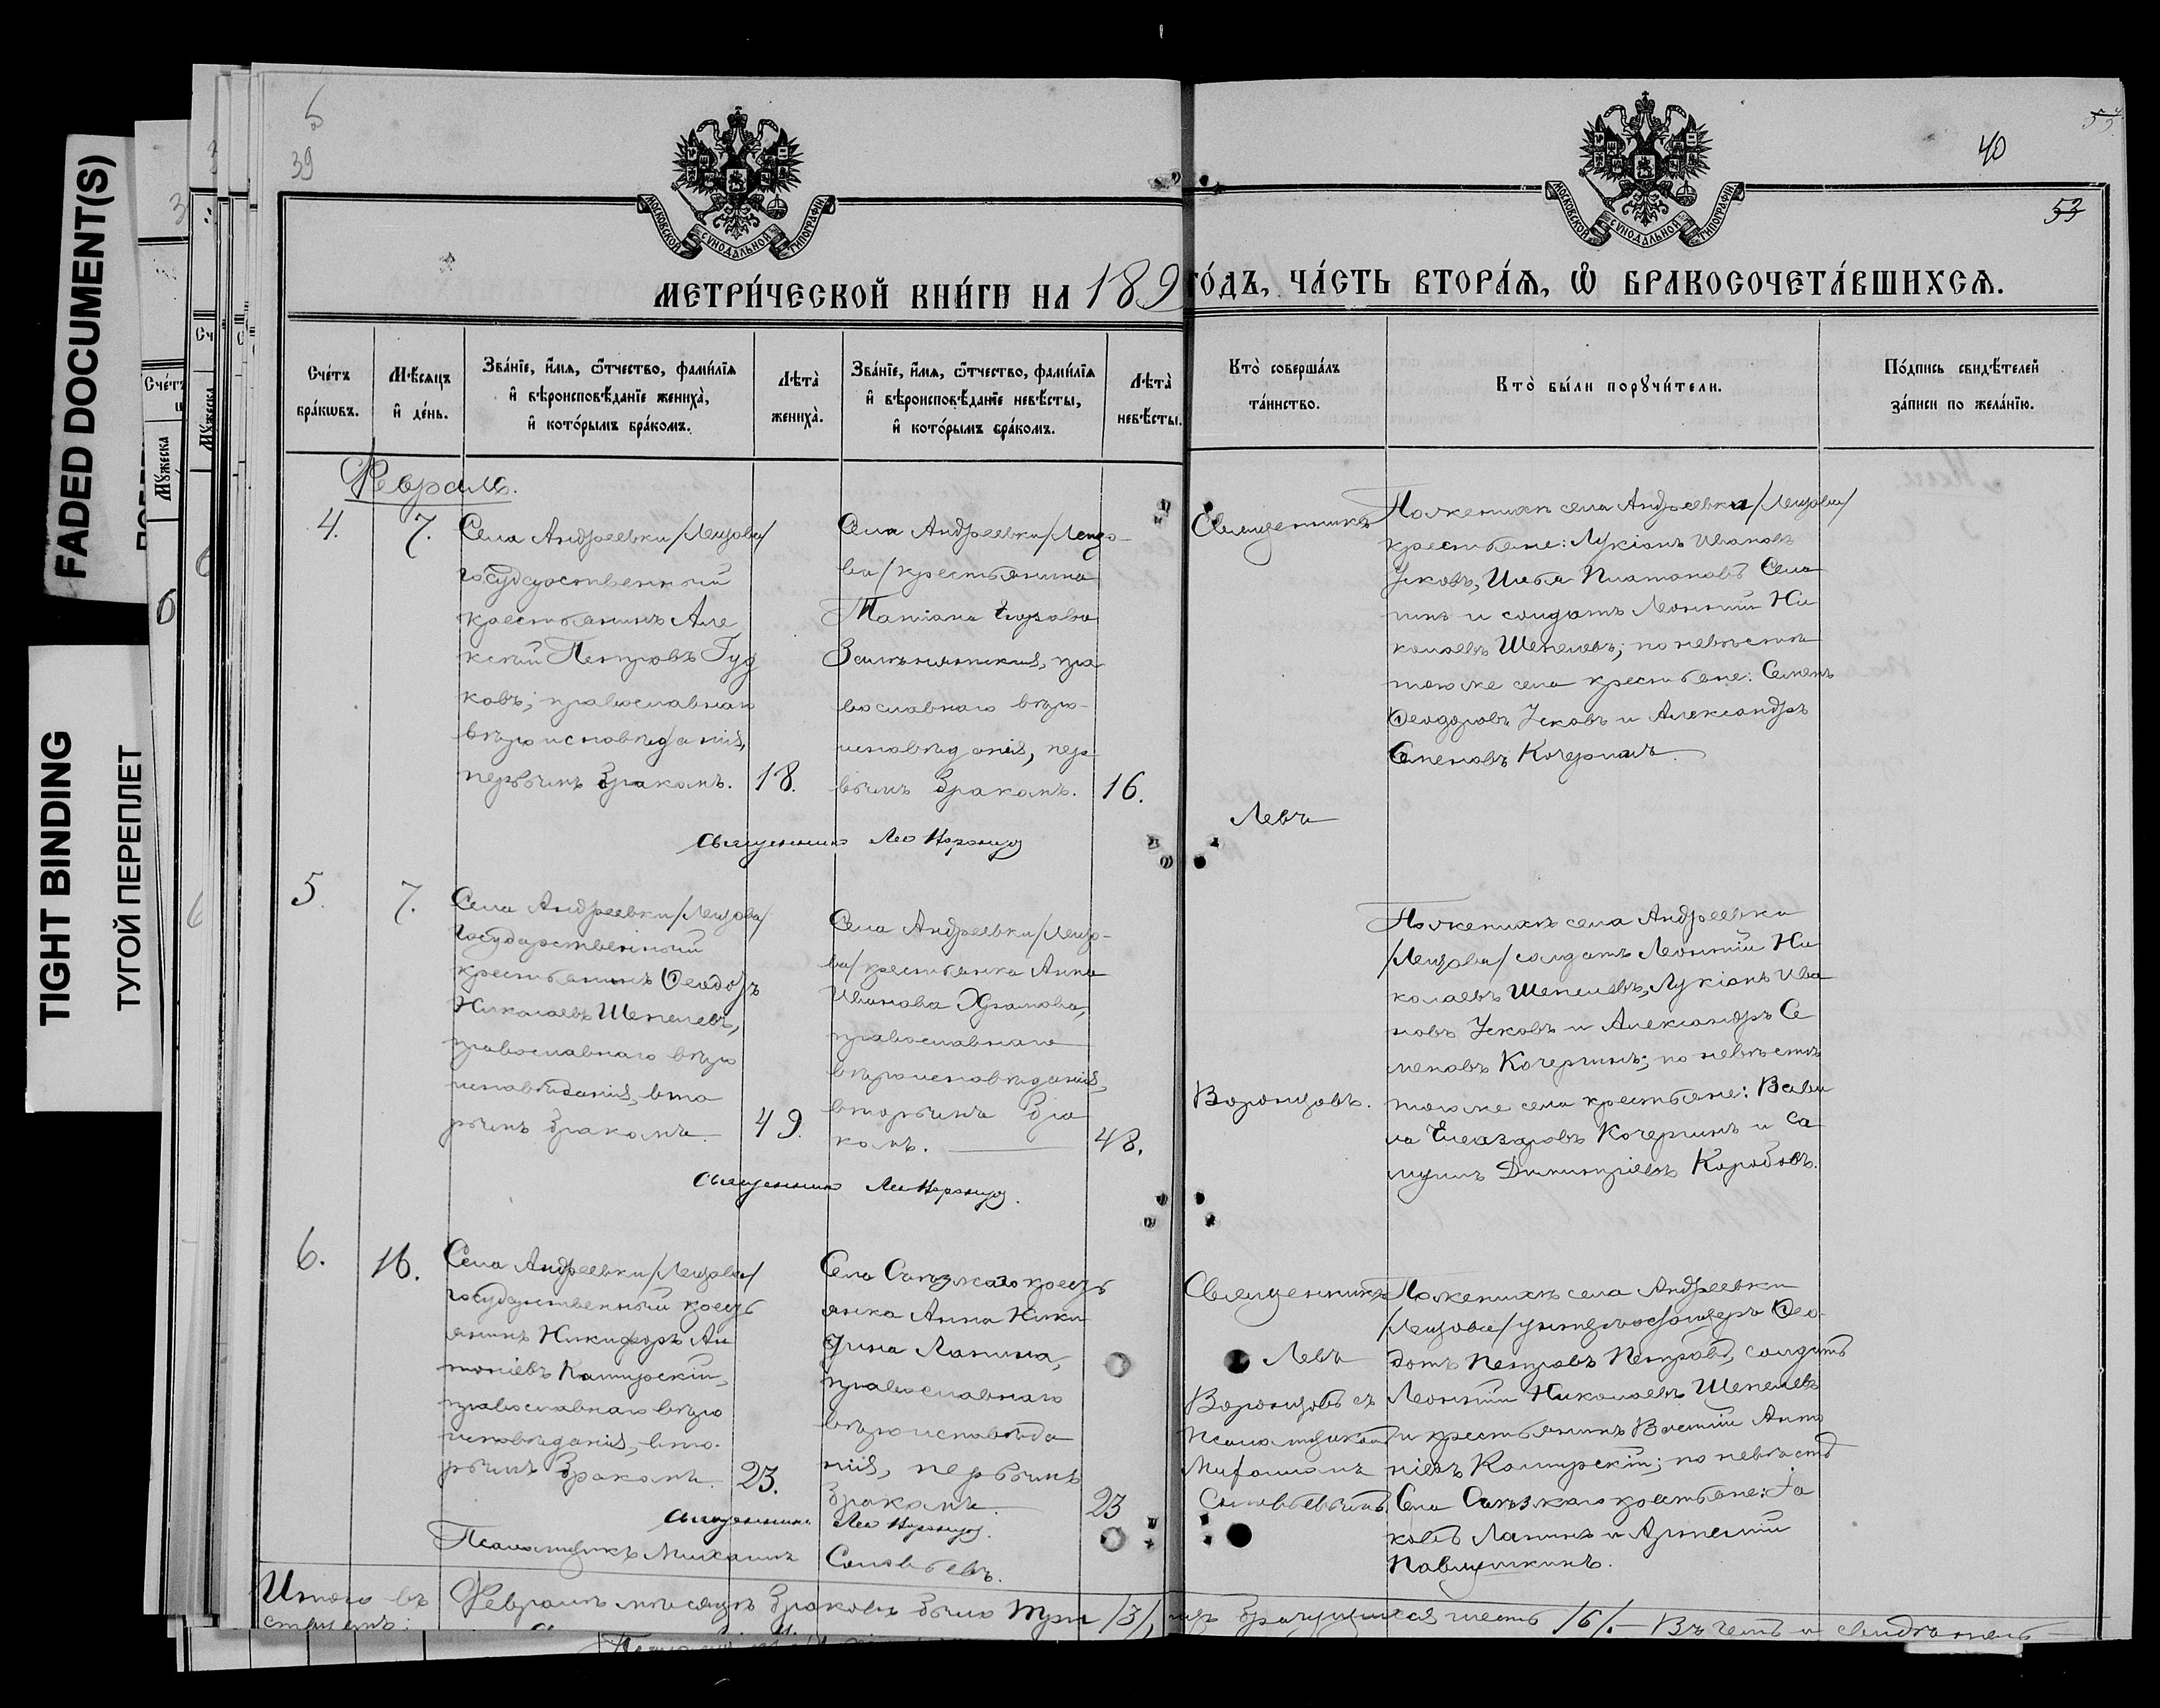 FADED DOCUMENT(S)
TIGHT BINDING
ТУГОЙ ПЕРЕПЛЕТ
39
40
53
МОСКОВСКОЙ СУНОДАЛЬНОЙ ТИПОГРАФІИ
МОСКОВСКОЙ СУНОДАЛЬНОЙ ТИПОГРАФІИ
МЕТРИ́ЧЕСКОЙ КНИ́ГИ НА 189
ГО́ДЪ, ЧА́СТЬ ВТОРА́Я, Ѡ БРАКОСОЧЕТА́ВШИХСЯ.
Сче́тъ бра́кѡвъ.
Мѣ́сяцъ и де́нь.
Зва́нїе, и́мя, ѻ́тчество, фами́лїя и вѣроисповѣ́данїе жениха̀, и кото́рымъ бра́комъ.
Лѣта̀ жениха̀.
Зва́нїе, и́мя, ѻ́тчество, фами́лїя и вѣроисповѣ́данїе невѣ́сты, и кото́рымъ бра́комъ.
Лѣта̀ невѣ́сты.
Кто̀ соверша́лъ та́инство.
Кто̀ бы́ли порꙋчи́тели.
По́дпись свидѣ́телей за́писи по жела́нїю.
Февраль.
4.
7.
Села Андреевки /Лещова/
государственный
крестьянинъ Але
ксѣй Петровъ Гуд
ковъ; православнаго
вѣроисповѣданія,
первымъ бракомъ.
18.
Села Андреевки /Лещо-
ва/ крестьянина
Татіана
право
вославнаго вѣро-
исповѣданія, пер
вымъ бракомъ.
16.
Священникъ
Левъ
Воронцовъ.
По женихѣ села Андреевки /Лещова/
крестьяне: Лукіанъ Ивановъ
Усковъ, Илья Платоновъ Села
тинъ и солдатъ Леонтій Ни
колаевъ Шепелевъ; по невѣстѣ
тогоже села крестьяне: Семенъ
Ѳеодоровъ Усковъ и Александръ
Семеновъ Кочергинъ.
Священникъ Лев Воронцов
5.
7.
Села Андреевки /Лещова/
государственный
крестьянинъ Ѳеодоръ
Николаевъ Шепелевъ,
православнаго вѣро
исповѣданія, вто
рымъ бракомъ.
49.
Села Андреевки /Лещо-
ва/ крестьянка Анна
Иванова Храмова,
православнаго
вѣроисповѣданія,
вторымъ бра
комъ.
48.
По женихѣ села Андреевки
/Лещова/ солдатъ Леонтій Ни
колаевъ Шепелевъ, Лукіанъ Ива
новъ Усковъ и Александръ Се
меновъ Кочергинъ; по невѣстѣ
тогоже села крестьяне: Вави
ла Елеазаровъ Кочергинъ и Са
муилъ Димитріевъ Коробовъ.
Священникъ Лев Воронцов.
6.
16.
Села Андреевки /Лещова/
государственный кресть
янинъ Никифоръ Ан
тоніевъ Каширскій,
православнаго вѣро
исповѣданія, вто-
рымъ бракомъ.
23.
Села Съѣзжаго кресть
янка Анна Ники
Лапина,
православнаго
вѣроисповѣда
нія, первымъ
бракомъ.
23
Священникъ
Левъ
Воронцовъ съ
Псаломщикомъ
Михаиломъ
Соловьевымъ
По женихѣ села Андреевки
/Лещова/ унтеръ офицеръ Ѳео
дотъ Петровъ Петровъ, солдатъ
Леонтій Николаевъ Шепелевъ
и крестьянинъ Антоніевъ Каширскій; по невѣстѣ
Села Съѣзжаго крестьяне: Іа
ковъ Лапинъ и Артемій
Павлушкинъ.
Священникъ Лев Воронцов.
Псаломщикъ Михаилъ Соловьевъ.
Итого въ Февралѣ мѣсяцѣ браковъ было три /3/, брачущихся шесть /6/. – Въ чемъ и свидѣтель